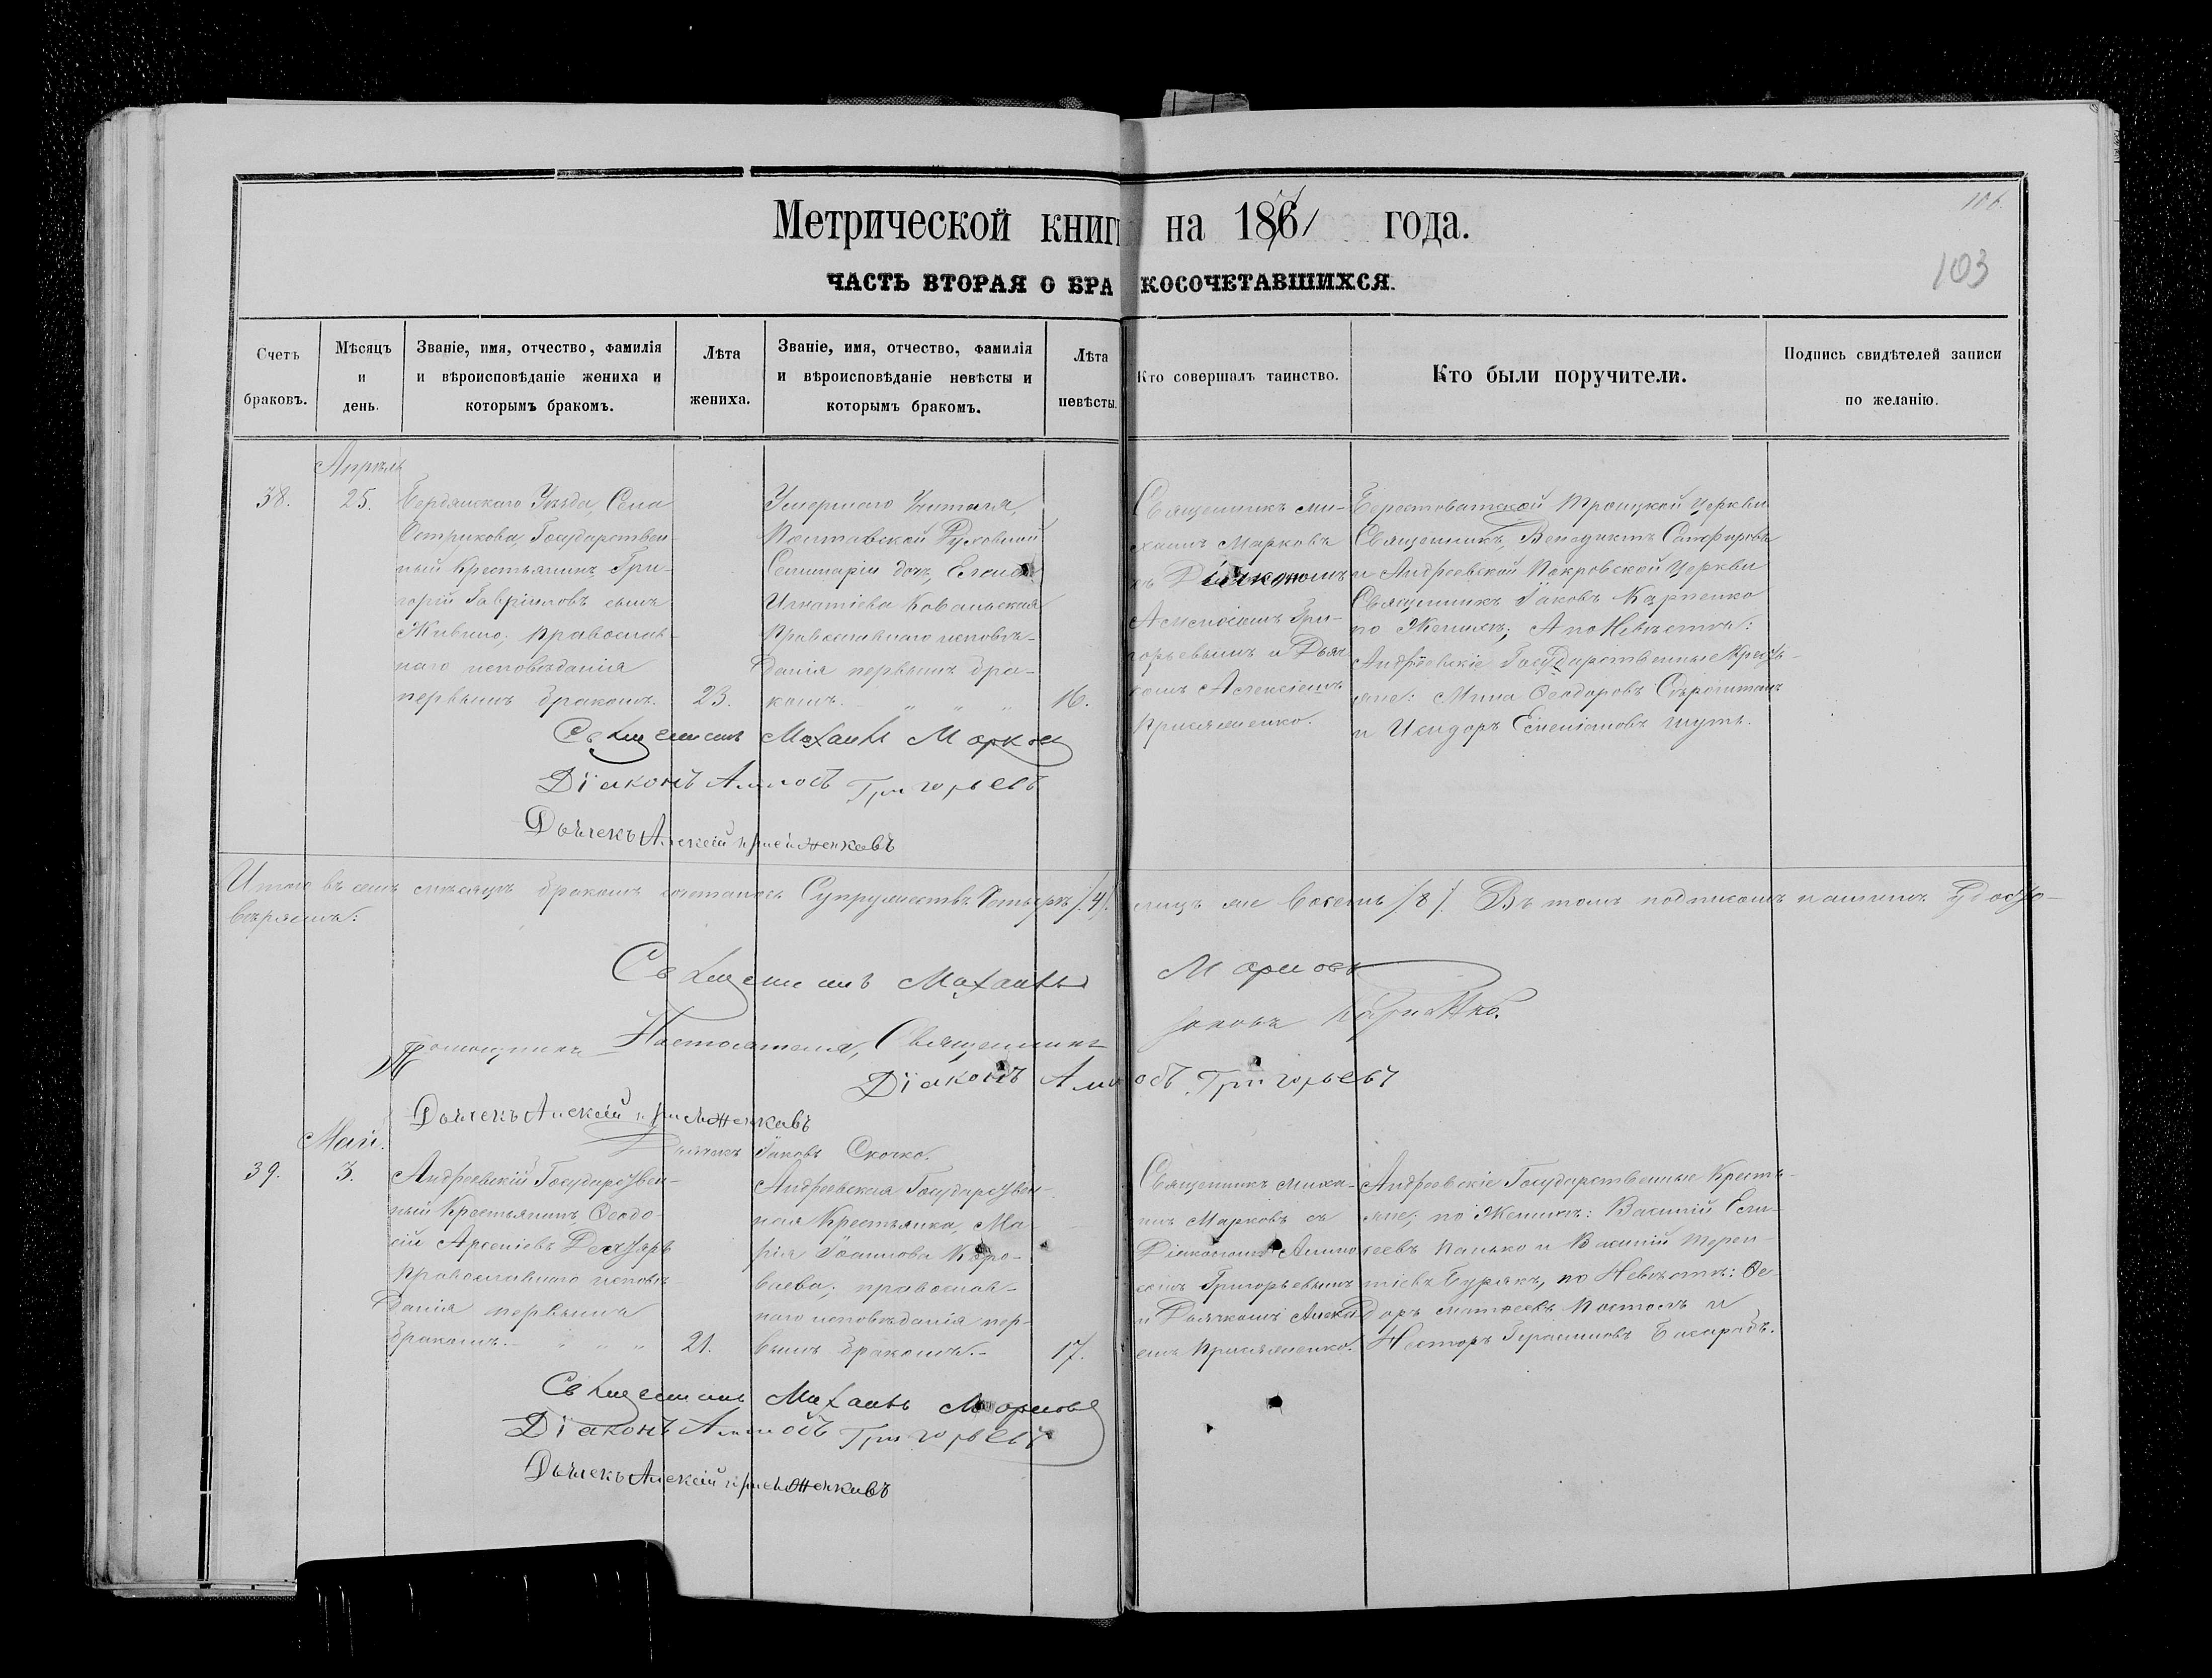 Метрической книги на 1871 года.
103
ЧАСТЬ ВТОРАЯ О БРАКОСОЧЕТАВШИХСЯ.
Счетъ браковъ.
Мѣсяцъ и день.
Званіе, имя, отчество, фамилія
и вѣроисповѣданіе жениха и
которымъ бракомъ.
Лѣта жениха.
Званіе, имя, отчество, фамилія
и вѣроисповѣданіе невѣсты и
которымъ бракомъ.
Лѣта невѣсты.
Кто совершалъ таинство.
Кто были поручители.
Подпись свидѣтелей записи
по желанію.
Апрѣль
38.
25.
Бердянскаго Уѣзда, Села
Острикова, Государствен-
ный Крестьянинъ, Гри-
горій Гавріиловъ сынъ
православ-
наго исповѣданія
первымъ бракомъ.
23.
Умершаго
Полтавской Духовной
Семинаріи дочь,
Игнатіева Ковальская
Православнаго исповѣ-
данія первымъ бра-
комъ.
16.
Священникъ Ми-
хаилъ Марковъ
съ Діякономъ
Гри-
горьевымъ и Дьяч-
комъ Алексіемъ
Присяженко.
Берестоватской Троицкой Церкви
Священникъ, Венедиктъ
и Андреевской Покровской Церкви
Священникъ Іаковъ Карпенко
по Женихѣ; А по Невѣстѣ:
Андреевскіе Государственные Кресть-
яне: Мина Ѳеодоровъ
и Исидоръ
Священникъ Михаилъ Марковъ
Діаконъ Григорьевъ
Дьячекъ Алексій Присяженковъ
Итого въ семъ мѣсяцѣ бракомъ сочталось Супружествъ Четыре /4/. лицъ же восемь /8/. Въ томъ подписомъ нашимъ Удосто-
вѣряемъ:
Священникъ Михаилъ Марковъ
Помощникъ Настоятеля, Священникъ Іаковъ Карпенко.
Діаконъ Григорьевъ
Дьячекъ Алексій Присяженковъ
Іаковъ Скочко.
Май.
39.
3.
Андреевскій Государствен-
ный Крестьянинъ Ѳеодо-
сій Арсеніевъ Дехтярь
Православнаго исповѣ-
данія первымъ
бракомъ.
21.
Андреевская Государствен-
ная Крестьянка, Ма-
рія
православ-
наго исповѣданія пер-
вымъ бракомъ.
17.
Священникъ Миха-
илъ Марковъ съ
Діякономъ
Григорьевымъ
и Дьячкомъ Алексі-
емъ Присяженко.
Андреевскіе Государственные Кресть-
яне; по Женихѣ: Василій Ели-
сеевъ Панько и Василій Терен-
тіевъ Бурякъ, по Невѣстѣ: Ѳе-
доръ Матвеевъ Постолъ и
Несторъ Герасимовъ Басарабъ.
Священникъ Михаилъ Марковъ
Діаконъ Григорьевъ
Дьячекъ Алексій Присяженковъ